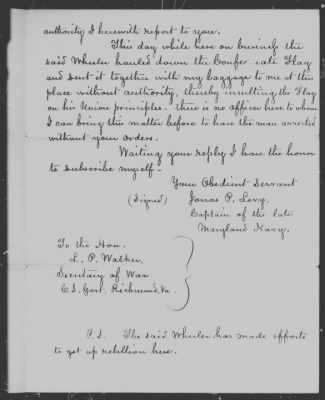 authority I herewith report to you.
This day while here on business the
said Wheeler hauled down the Confederate Flag
and sent it together with my baggage to me at this
place without authority, thereby insulting the Flag
on his Union principles. There is no officer here to whom
I can bring this matter before to have the man arrested
without your orders.
Waiting your reply I have the honor
to subscribe myself -
Your Obedient Servant
(Signed) Jonas P. Levy,
Captain of the late
Maryland Navy.
To the Hon.
L. P. Walker,
Secretary of War
C.S. Govt. Richmond, Va.
P.S. The said Wheeler has made efforts
to get up rebellion here.